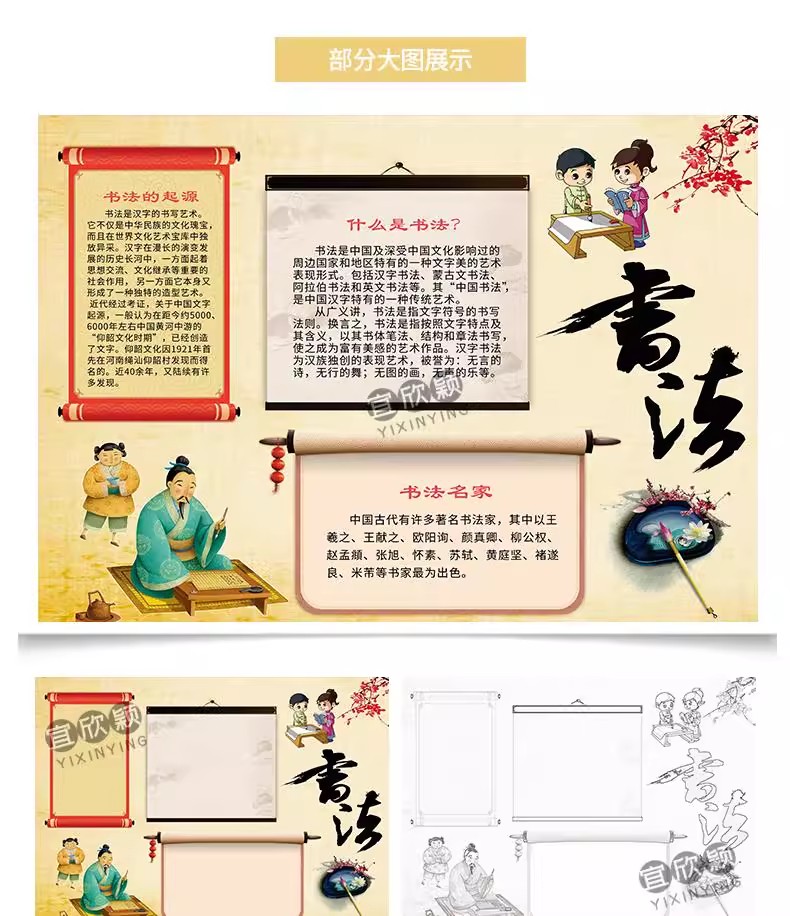 部分大图展示
书法的起源
书法是汉字的书写艺术。
它不仅是中华民族的文化瑰宝，
而且在世界文化艺术宝库中独
放异采。汉字在漫长的演变发
展的历史长河中，一方面起着
思想交流、文化继承等重要的
社会作用，另一方面它本身又
形成了一种独特的造型艺术。
近代经过考证，关于中国文字
起源，一般认为在距今约5000、
6000年左右中国黄河中游的
“仰韶文化时期”，已经创造
了文字。仰韶文化因1921年首
先在河南绳汕仰韶村发现而得
名的。近40余年，又陆续有许
多发现。
什么是书法？
书法是中国及深受中国文化影响过的
周边国家和地区特有的一种文字美的艺术
表现形式。包括汉字书法、蒙古文书法、
阿拉伯书法和英文书法等。其“中国书法”，
是中国汉字特有的一种传统艺术。
从广义讲，书法是指文字符号的书写
法则。换言之，书法是指按照文字特点及
其含义，以其书体笔法、结构和章法书写，
使之成为富有美感的艺术作品。汉字书法
为汉族独创的表现艺术，被誉为：无言的
诗，无行的舞；无图的画，无声的乐等。
書法
宜欣颖
YIXINYING
书法名家
中国古代有许多著名书法家，其中以王
羲之、王献之、欧阳询、颜真卿、柳公权、
赵孟頫、张旭、怀素、苏轼、黄庭坚、褚遂
良、米芾等书家最为出色。
宜欣颖
YIXINYING
書法
書法
宜欣颖
YIXINYING